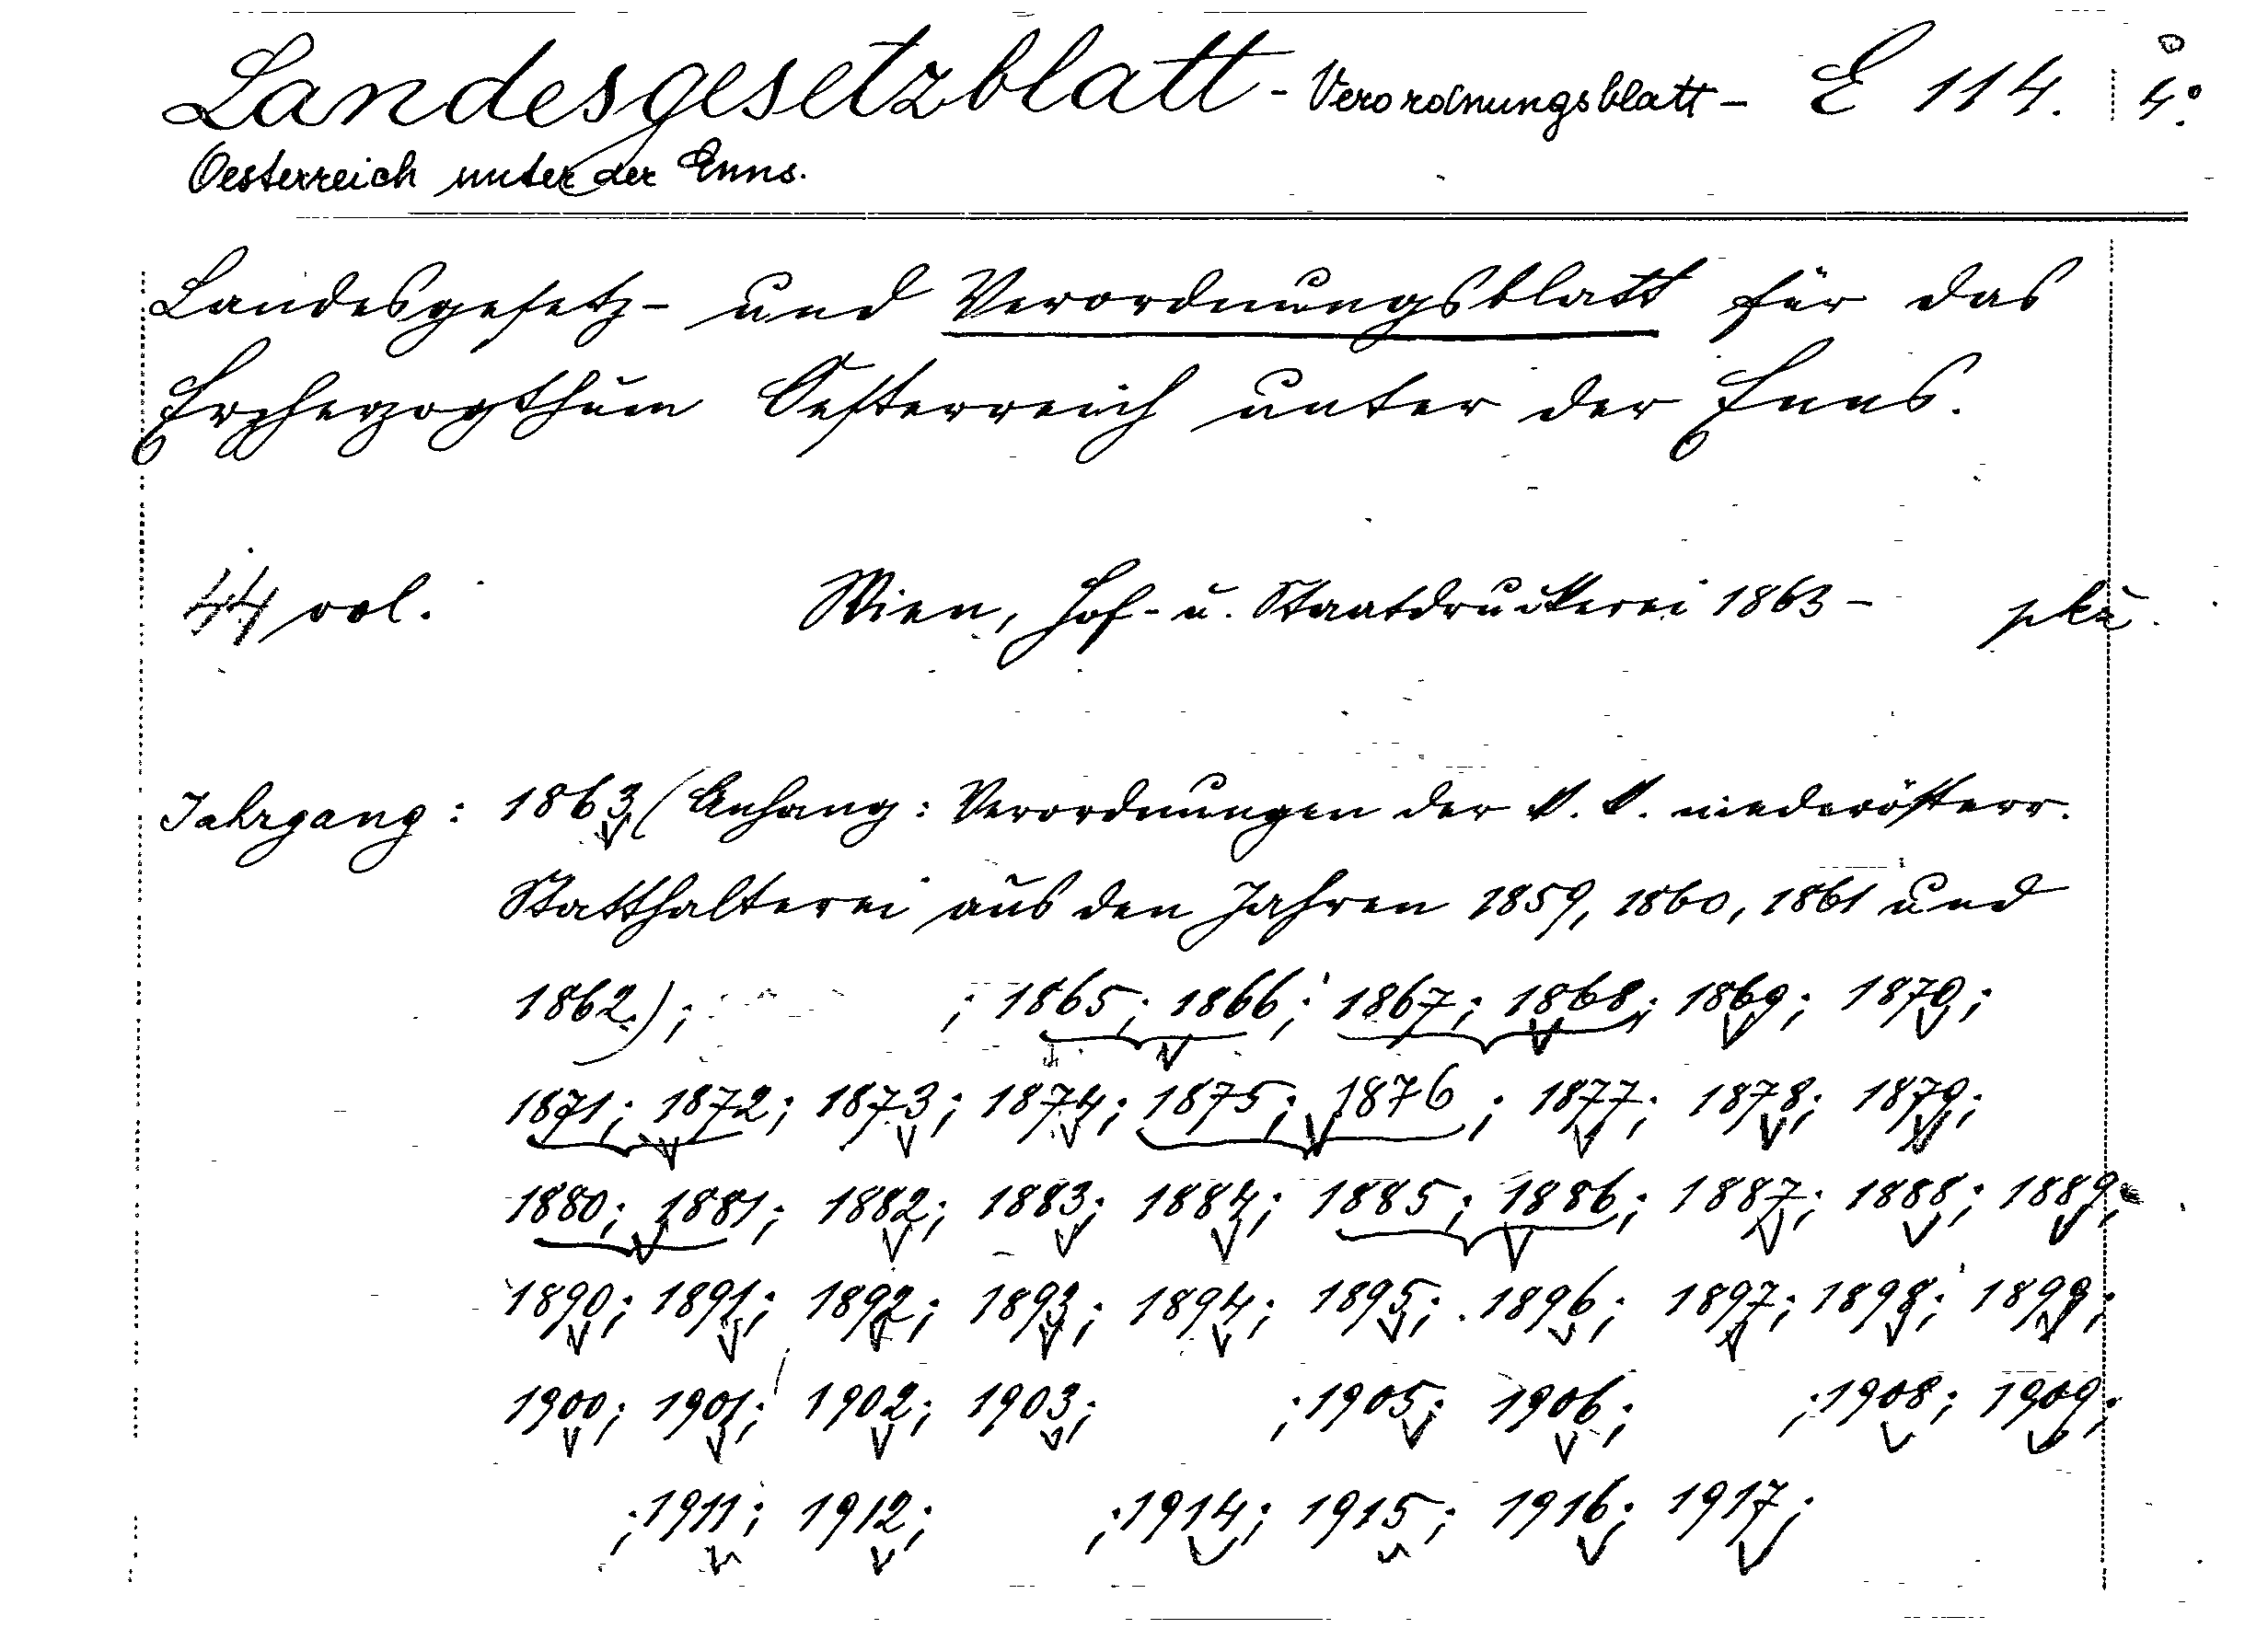 Landesgesetzblatt - Verordnungsblatt - E 114. 4°.
Oesterreich unter der Enns.
Landesgesetz- und Verordnungsblatt für das
Erzherzogthum Oesterreich unter der Enns.
44 vol. Wien, Hof- u. Staatdruckerei 1863 -
Jahrgang: 1863 (Anhang: Verordnungen der k. k. niederösterr.
Statthalterei aus den Jahren 1859, 1860, 1861 und
1862.); ; 1865; 1866; 1867; 1868; 1869; 1870;
1871; 1872; 1873; 1874; 1875; 1876; 1877; 1878; 1879;
1880; 1881; 1882; 1883; 1884; 1885; 1886; 1887; 1888; 1889;
1890; 1891; 1892; 1893; 1894; 1895; 1896; 1897; 1898; 1899;
1900; 1901; 1902; 1903; ; 1905; 1906; ; 1908; 1909;
; 1911; 1912; ; 1914; 1915; 1916; 1917;